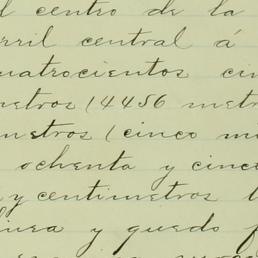 l centro de la
rril central á
uatrocientos cin
metros (4456 metr
metros (cinco mi
ochenta y cinco
y centimetros l
linea y quedo f